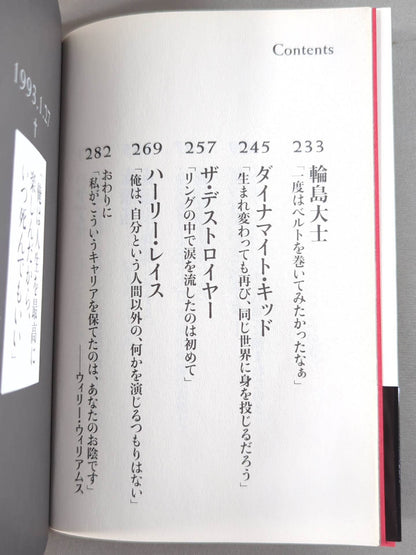 Contents
233
輪島大士
「一度はベルトを巻いてみたかったなぁ」
245
ダイナマイト・キッド
「生まれ変わっても再び、同じ世界に身を投じるだろう」
257
ザ・デストロイヤー
「リングの中で涙を流したのは初めて」
269
ハーリー・レイス
「俺は、自分という人間以外の、何かを演じるつもりはない」
282
おわりに
「私がこういうキャリアを保てたのは、あなたのお陰です」
――ウィリー・ウィリアムス
1993.1.27
†
いつ死んでもいい」